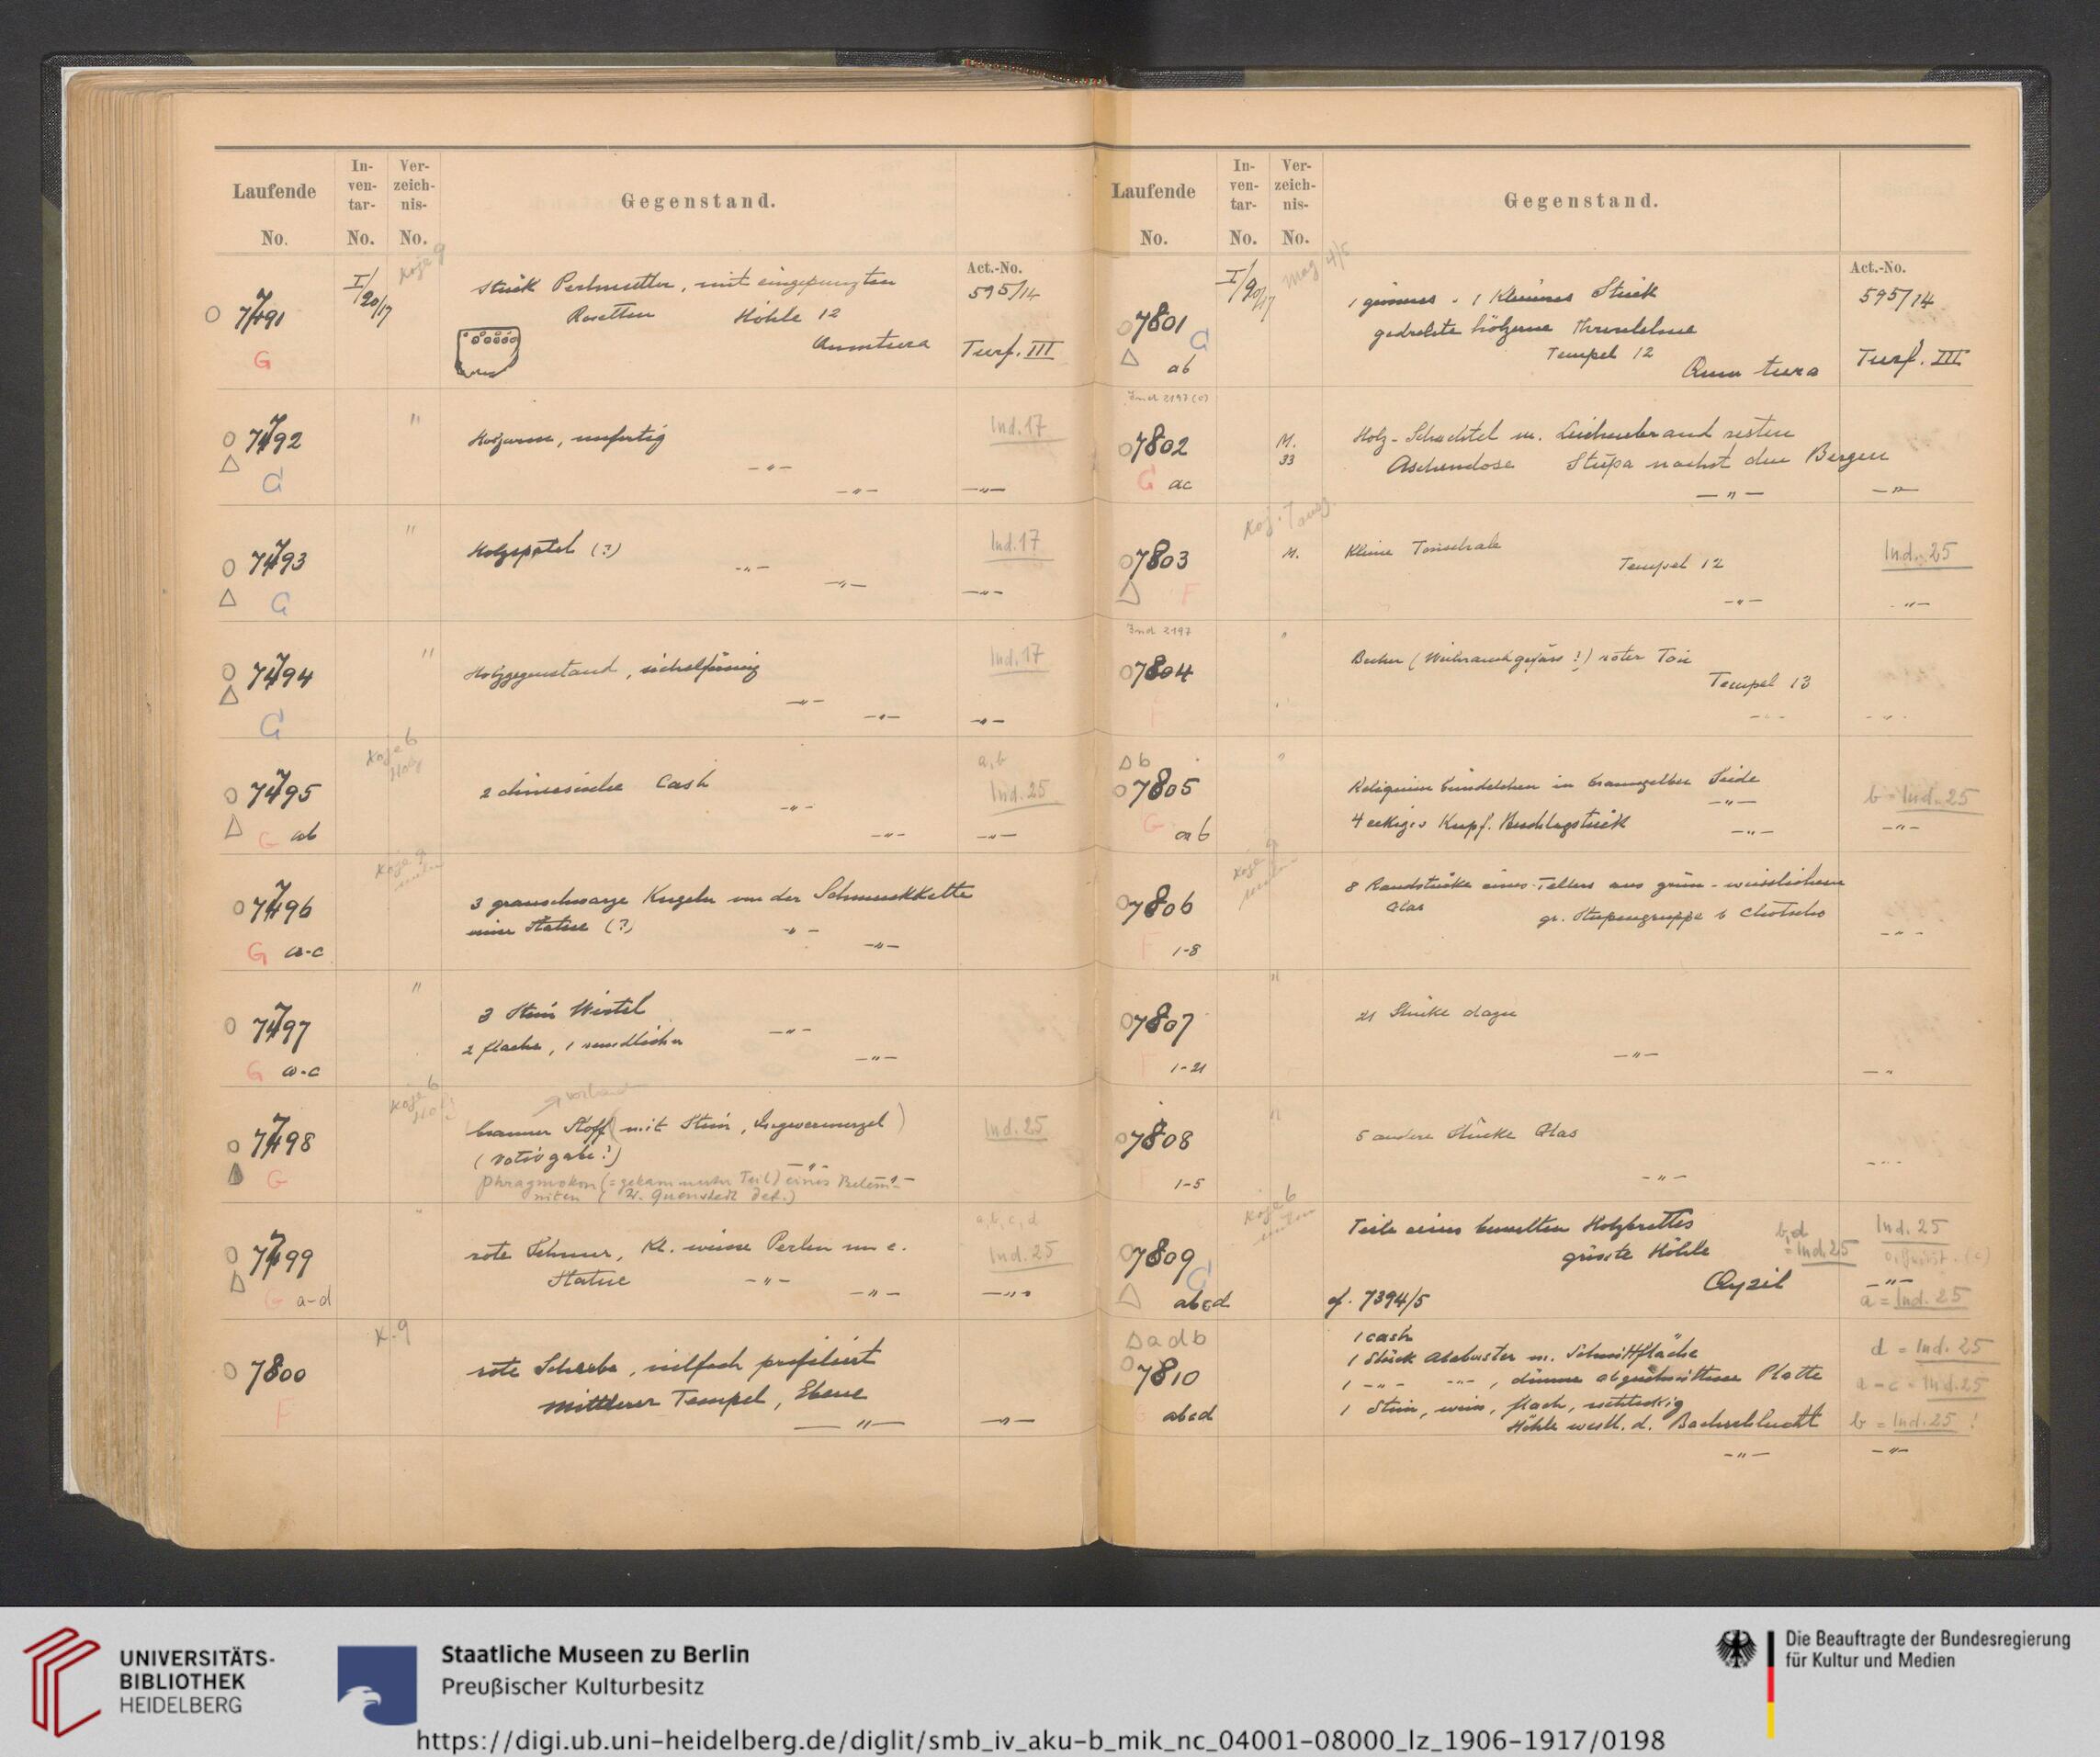 Laufende No.
In-ven-tar- No.
Ver-zeich-nis- No.
Gegenstand.
Act.-No.
7791
G
I/20/17
Koje 9
Stück Perlmutter, mit eingepunzten
Rosetten Höhle 12
Kumtura
595/14
Turf. III
7792
G
"
unfertig
-"-
-"-
Ind. 17
-"-
7793
G
"
Holzspatel (?)
-"-
-"-
Ind. 17
-"-
7794
G
"
Holzgegenstand, sichelförmig
-"-
-"-
Ind. 17
-"-
7795
G ab
Koje 6
Holz
2 chinesische Cash
-"-
-"-
a, b
Ind. 25
-"-
7796
G a-c
Koje 9
3 grauschwarze Kugeln von der Schmuckkette
einer Statue (?)
-"-
-"-
7797
G a-c
"
3 Stein Wirtel
2 flache, 1 rundlicher
-"-
-"-
7798
G
Koje 6
Holz
brauner Stoff (mit Stein, Ingwerwurzel)
(Votivgabe?)
-"-
Phragmokon (= gekammerter Teil) eines Belem-
niten (W. Quenstedt det.)
Ind. 25
7799
G a-d
"
rote Schnur, Kl. weisse Perlen von e.
Statue -"-
-"-
a, b, c, d
Ind. 25
-"-
7800
F
K. 9
rote Scherbe, vielfach profiliert
mittlerer Tempel, Ebene
-"-
-"-
Laufende No.
In-ven-tar- No.
Ver-zeich-nis- No.
Gegenstand.
Act.-No.
7801
G
ab
I/20/17
Mag 4/5
1 grösseres u. 1 kleineres Stück
gedrehte hölzerne Thronlehne
Tempel 12
Kumtura
595/14
Turf. III
7802
G ac
M.
33
Holz-Schachtel m. Leichenbrandresten
Aschendose Stupa nächst den Bergen
-"-
-"-
7803
F
M.
Kleine Tonschale
Tempel 12
-"-
Ind. 25
-"-
7804
F
"
Becher (Weihrauchgefäss?) roter Ton
Tempel 13
-"-
-"-
b
7805
G ab
"
Reliquienbündelchen in braungelber Seide
-"-
4 eckiges Kupf. Beschlagstück
-"-
b = Ind. 25
-"-
7806
F 1-8
Koje 9
8 Randstücke eines Tellers aus grün-weisslichem
Glas
gr. Stupengruppe b Chotscho
-"-
7807
F 1-21
"
21 Stücke dazu
-"-
-"-
7808
F 1-5
"
5 andere Stücke Glas
-"-
-"-
7809
G
abcd
Koje 6
Teile eines bemalten Holzbrettes
grösste Höhle
Qyzil
cf. 7394/5
b,d
= Ind. 25
Ind. 25
-"-
a = Ind. 25
a d b
7810
abcd
1 cash
1 Stück Alabaster m. Schnittfläche
1 -"- -"-, dünne abgeschnittene Platte
1 Stein, weiss, flach, rechteckig
Höhle westl. d. Bachschlucht
-"-
d = Ind. 25
a-c = Ind. 25
b = Ind. 25!
-"-
UNIVERSITÄTS-
BIBLIOTHEK
HEIDELBERG
Staatliche Museen zu Berlin
Preußischer Kulturbesitz
Die Beauftragte der Bundesregierung
für Kultur und Medien
https://digi.ub.uni-heidelberg.de/diglit/smb_iv_aku-b_mik_nc_04001-08000_lz_1906-1917/0198